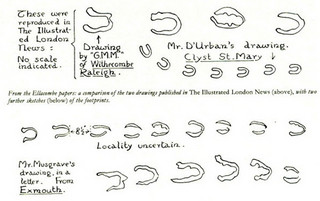 These were
reproduced in
The Illustrat-
ed London
News:
No scale
indicated.
Drawing
by "G.M.M."
of Withecombe
Raleigh.
Mr. D'Urban's drawing.
Clyst St. Mary
From the Ellacombe papers: a comparison of the two drawings published in The Illustrated London News (above), with two
further sketches (below) of the footprints.
Locality uncertain.
Mr. Musgrave's
drawing, in a
letter. From
Exmouth.